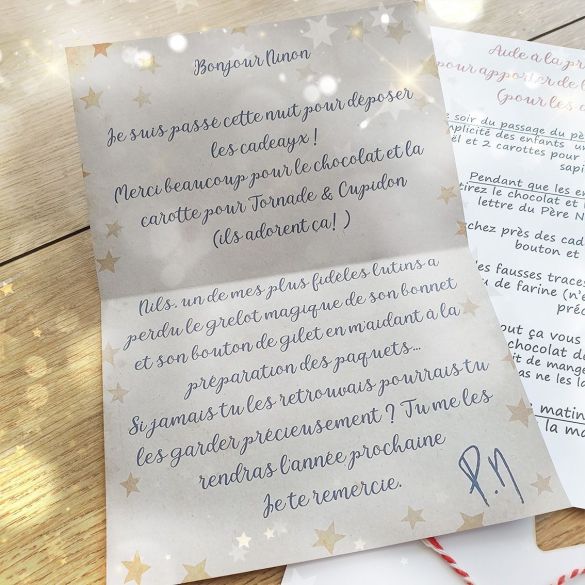 Bonjour Ninon
Je suis passé cette nuit pour déposer
les cadeayx !
Merci beaucoup pour le chocolat et la
carotte pour Tornade & Cupidon
(ils adorent ça! )
Nils, un de mes plus fidèles lutins a
perdu le grelot magique de son bonnet
et son bouton de gilet en m'aidant à la
préparation des paquets...
Si jamais tu les retrouvais pourrais tu
les garder précieusement ? Tu me les
rendras l'année prochaine
Je te remercie.
P.N
Aide à la pr
pour apporter de l
(pour les
e soir du passage du pè
mplicité des enfants un
ël et 2 carottes pour
sapi
Pendant que les en
tirez le chocolat et l
lettre du Père N
chez près des cad
bouton et
des fausses traces
u de farine (n'e
préc
out ça vous
chocolat d
it de mange
as ne les la
matin
la ma